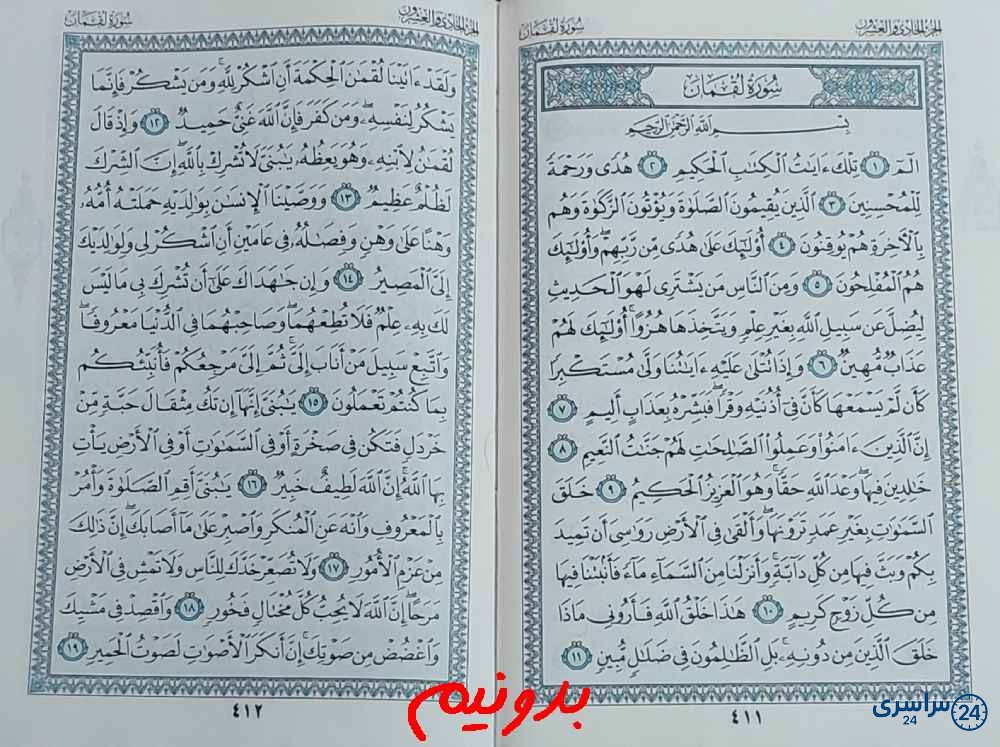 الجزء الحادي والعشرون
سُورَةُ لُقْمَان
سُورَةُ لُقْمَانَ
بِسْمِ اللَّهِ الرَّحْمَٰنِ الرَّحِيمِ
الٓمٓ ١ تِلْكَ ءَايَٰتُ الْكِتَٰبِ الْحَكِيمِ ٢ هُدًى وَرَحْمَةً
لِّلْمُحْسِنِينَ ٣ الَّذِينَ يُقِيمُونَ الصَّلَوٰةَ وَيُؤْتُونَ الزَّكَوٰةَ وَهُم
بِالْأَخِرَةِ هُمْ يُوقِنُونَ ٤ أُوْلَٰٓئِكَ عَلَىٰ هُدًى مِّن رَّبِّهِمْ وَأُوْلَٰٓئِكَ
هُمُ الْمُفْلِحُونَ ٥ وَمِنَ النَّاسِ مَن يَشْتَرِى لَهْوَ الْحَدِيثِ
لِيُضِلَّ عَن سَبِيلِ اللَّهِ بِغَيْرِ عِلْمٍ وَيَتَّخِذَهَا هُزُوًا أُوْلَٰٓئِكَ لَهُمْ
عَذَابٌ مُّهِينٌ ٦ وَإِذَا تُتْلَىٰ عَلَيْهِ ءَايَٰتُنَا وَلَّىٰ مُسْتَكْبِرًا
كَأَن لَّمْ يَسْمَعْهَا كَأَنَّ فِىٓ أُذُنَيْهِ وَقْرًا فَبَشِّرْهُ بِعَذَابٍ أَلِيمٍ ٧
إِنَّ الَّذِينَ ءَامَنُوا وَعَمِلُوا الصَّٰلِحَٰتِ لَهُمْ جَنَّٰتُ النَّعِيمِ ٨
خَٰلِدِينَ فِيهَا وَعْدَ اللَّهِ حَقًّا وَهُوَ الْعَزِيزُ الْحَكِيمُ ٩ خَلَقَ
السَّمَٰوَٰتِ بِغَيْرِ عَمَدٍ تَرَوْنَهَا وَأَلْقَىٰ فِى الْأَرْضِ رَوَٰسِىَ أَن تَمِيدَ
بِكُمْ وَبَثَّ فِيهَا مِن كُلِّ دَآبَّةٍ وَأَنزَلْنَا مِنَ السَّمَآءِ مَآءً فَأَنبَتْنَا فِيهَا
مِن كُلِّ زَوْجٍ كَرِيمٍ ١٠ هَٰذَا خَلْقُ اللَّهِ فَأَرُونِى مَاذَا
خَلَقَ الَّذِينَ مِن دُونِهِۦ بَلِ الظَّٰلِمُونَ فِى ضَلَٰلٍ مُّبِينٍ ١١
٤١١
الجزء الحادي والعشرون
سُورَةُ لُقْمَان
وَلَقَدْ ءَاتَيْنَا لُقْمَٰنَ الْحِكْمَةَ أَنِ اشْكُرْ لِلَّهِ وَمَن يَشْكُرْ فَإِنَّمَا
يَشْكُرُ لِنَفْسِهِۦ وَمَن كَفَرَ فَإِنَّ اللَّهَ غَنِىٌّ حَمِيدٌ ١٢ وَإِذْ قَالَ
لُقْمَٰنُ لِابْنِهِۦ وَهُوَ يَعِظُهُۥ يَٰبُنَىَّ لَا تُشْرِكْ بِاللَّهِ إِنَّ الشِّرْكَ
لَظُلْمٌ عَظِيمٌ ١٣ وَوَصَّيْنَا الْإِنسَٰنَ بِوَٰلِدَيْهِ حَمَلَتْهُ أُمُّهُۥ
وَهْنًا عَلَىٰ وَهْنٍ وَفِصَٰلُهُۥ فِى عَامَيْنِ أَنِ اشْكُرْ لِى وَلِوَٰلِدَيْكَ
إِلَىَّ الْمَصِيرُ ١٤ وَإِن جَٰهَدَاكَ عَلَىٰٓ أَن تُشْرِكَ بِى مَا لَيْسَ
لَكَ بِهِۦ عِلْمٌ فَلَا تُطِعْهُمَا وَصَاحِبْهُمَا فِى الدُّنْيَا مَعْرُوفًا
وَاتَّبِعْ سَبِيلَ مَنْ أَنَابَ إِلَىَّ ثُمَّ إِلَىَّ مَرْجِعُكُمْ فَأُنَبِّئُكُم
بِمَا كُنتُمْ تَعْمَلُونَ ١٥ يَٰبُنَىَّ إِنَّهَآ إِن تَكُ مِثْقَالَ حَبَّةٍ مِّنْ
خَرْدَلٍ فَتَكُن فِى صَخْرَةٍ أَوْ فِى السَّمَٰوَٰتِ أَوْ فِى الْأَرْضِ يَأْتِ
بِهَا اللَّهُ إِنَّ اللَّهَ لَطِيفٌ خَبِيرٌ ١٦ يَٰبُنَىَّ أَقِمِ الصَّلَوٰةَ وَأْمُرْ
بِالْمَعْرُوفِ وَانْهَ عَنِ الْمُنكَرِ وَاصْبِرْ عَلَىٰ مَآ أَصَابَكَ إِنَّ ذَٰلِكَ
مِنْ عَزْمِ الْأُمُورِ ١٧ وَلَا تُصَعِّرْ خَدَّكَ لِلنَّاسِ وَلَا تَمْشِ فِى الْأَرْضِ
مَرَحًا إِنَّ اللَّهَ لَا يُحِبُّ كُلَّ مُخْتَالٍ فَخُورٍ ١٨ وَاقْصِدْ فِى مَشْيِكَ
وَاغْضُضْ مِن صَوْتِكَ إِنَّ أَنكَرَ الْأَصْوَٰتِ لَصَوْتُ الْحَمِيرِ ١٩
٤١٢
بدونیم
سراسری 24
24